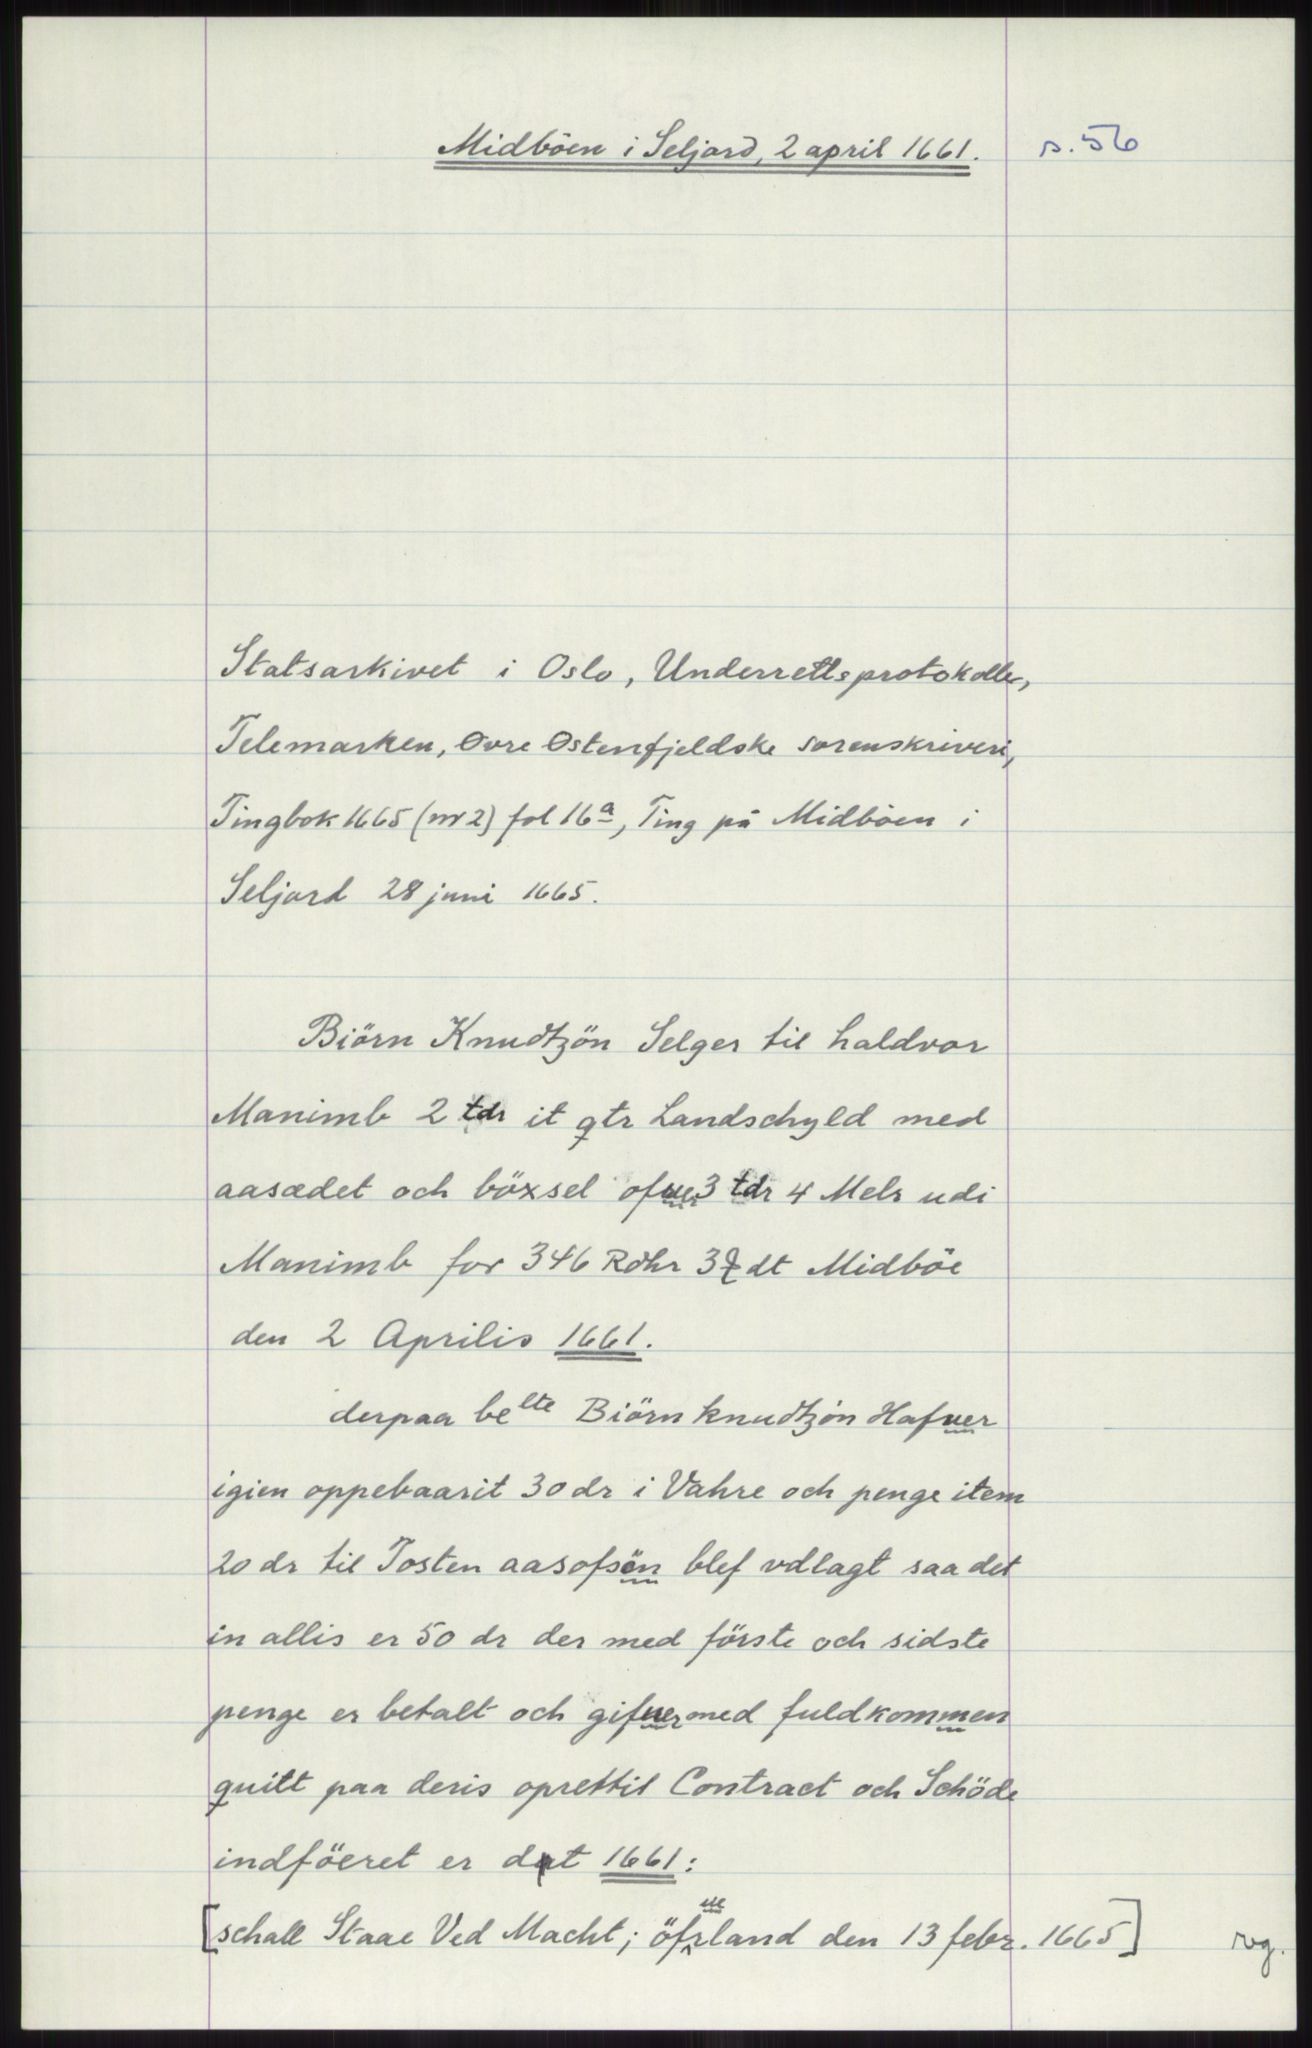 Midböen i Seljord, 2 april 1661. s. 56
Statsarkivet i Oslo, Underrettsprotokoller,
Telemarken, Øvre Østenfjeldske sorenskriveri,
Tingbok 1665 (nr 2) fol 16a, Ting på Midböen i
Seljord 28 juni 1665.
Biörn Knudtzön Selger til haldvor
Manimb 2 tdr it qtr Landschyld med
aasædet och böxsel ofuer 3 tdr 4 Melr udi
Manimb for 346 Rdhr 3 dt Midböe
den 2 Aprilis 1661.
derpaa belte Biörn knudtzön Hafuer
igien oppebaarit 30 dr i Vahre och penge item
20 dr til Tosten aasofsön blef vdlagt saa det
in allis er 50 dr der med förste och sidste
penge er betalt och gifuer med fuldkommen
quitt paa deris oprettit Contract och Schöde
indföeret er dat 1661:
[schall Staae Ved Macht; öfreland den 13 febr. 1665] rvg.